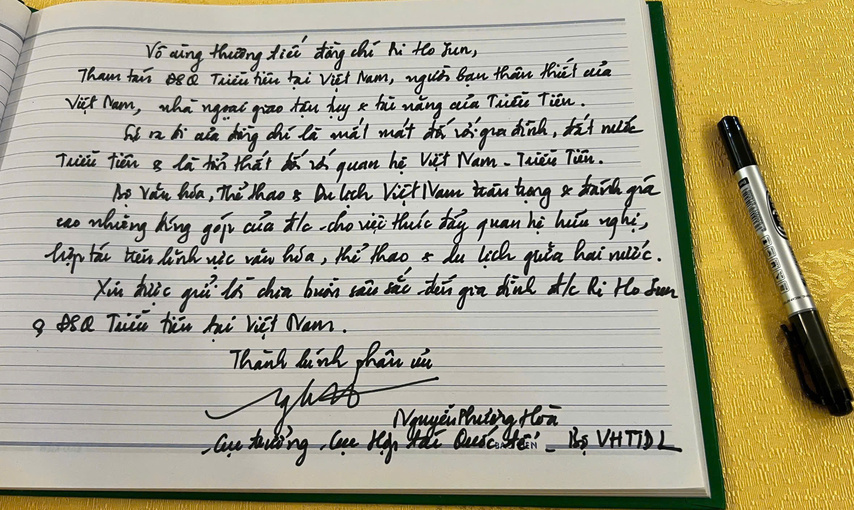 Vô cùng thương tiếc đồng chí Ri Ho Jun,
Tham tán ĐSQ Triều tiên tại Việt Nam, người bạn thân thiết của
Việt Nam, nhà ngoại giao tận tụy & tài năng của Triều Tiên.
Sự ra đi của đồng chí là mất mát đối với gia đình, đất nước
Triều tiên & là tổn thất đối với quan hệ Việt Nam - Triều Tiên.
Bộ Văn hóa, Thể thao & Du lịch Việt Nam trân trọng & đánh giá
cao những đóng góp của đ/c cho việc thúc đẩy quan hệ hữu nghị,
hợp tác trên lĩnh vực văn hóa, thể thao & du lịch giữa hai nước.
Xin được gửi lời chia buồn sâu sắc đến gia đình đ/c Ri Ho Jun
& ĐSQ Triều tiên tại Việt Nam.
Thành kính phân ưu
Nguyễn Phương Hoà
Cục trưởng Cục Hợp tác Quốc tế - Bộ VHTTDL